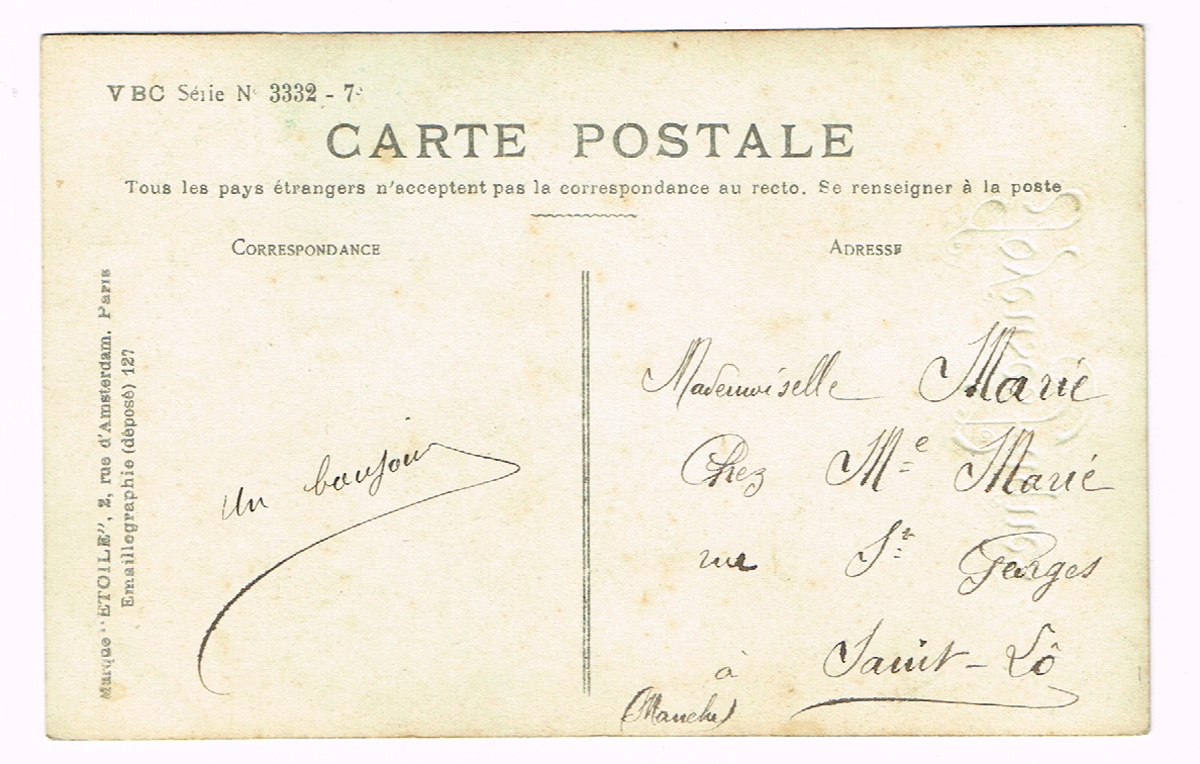 VBC Série No 3332 - 7e
CARTE POSTALE
Tous les pays étrangers n'acceptent pas la correspondance au recto. Se renseigner à la poste
CORRESPONDANCE
ADRESSE
Marque "ETOILE", 2, rue d'Amsterdam. Paris
Emaillographie (déposé) 127
un bonjour
Mademoiselle Marie
Chez Me Marie
rue St Georges
à Saint-Lô
(Manche)